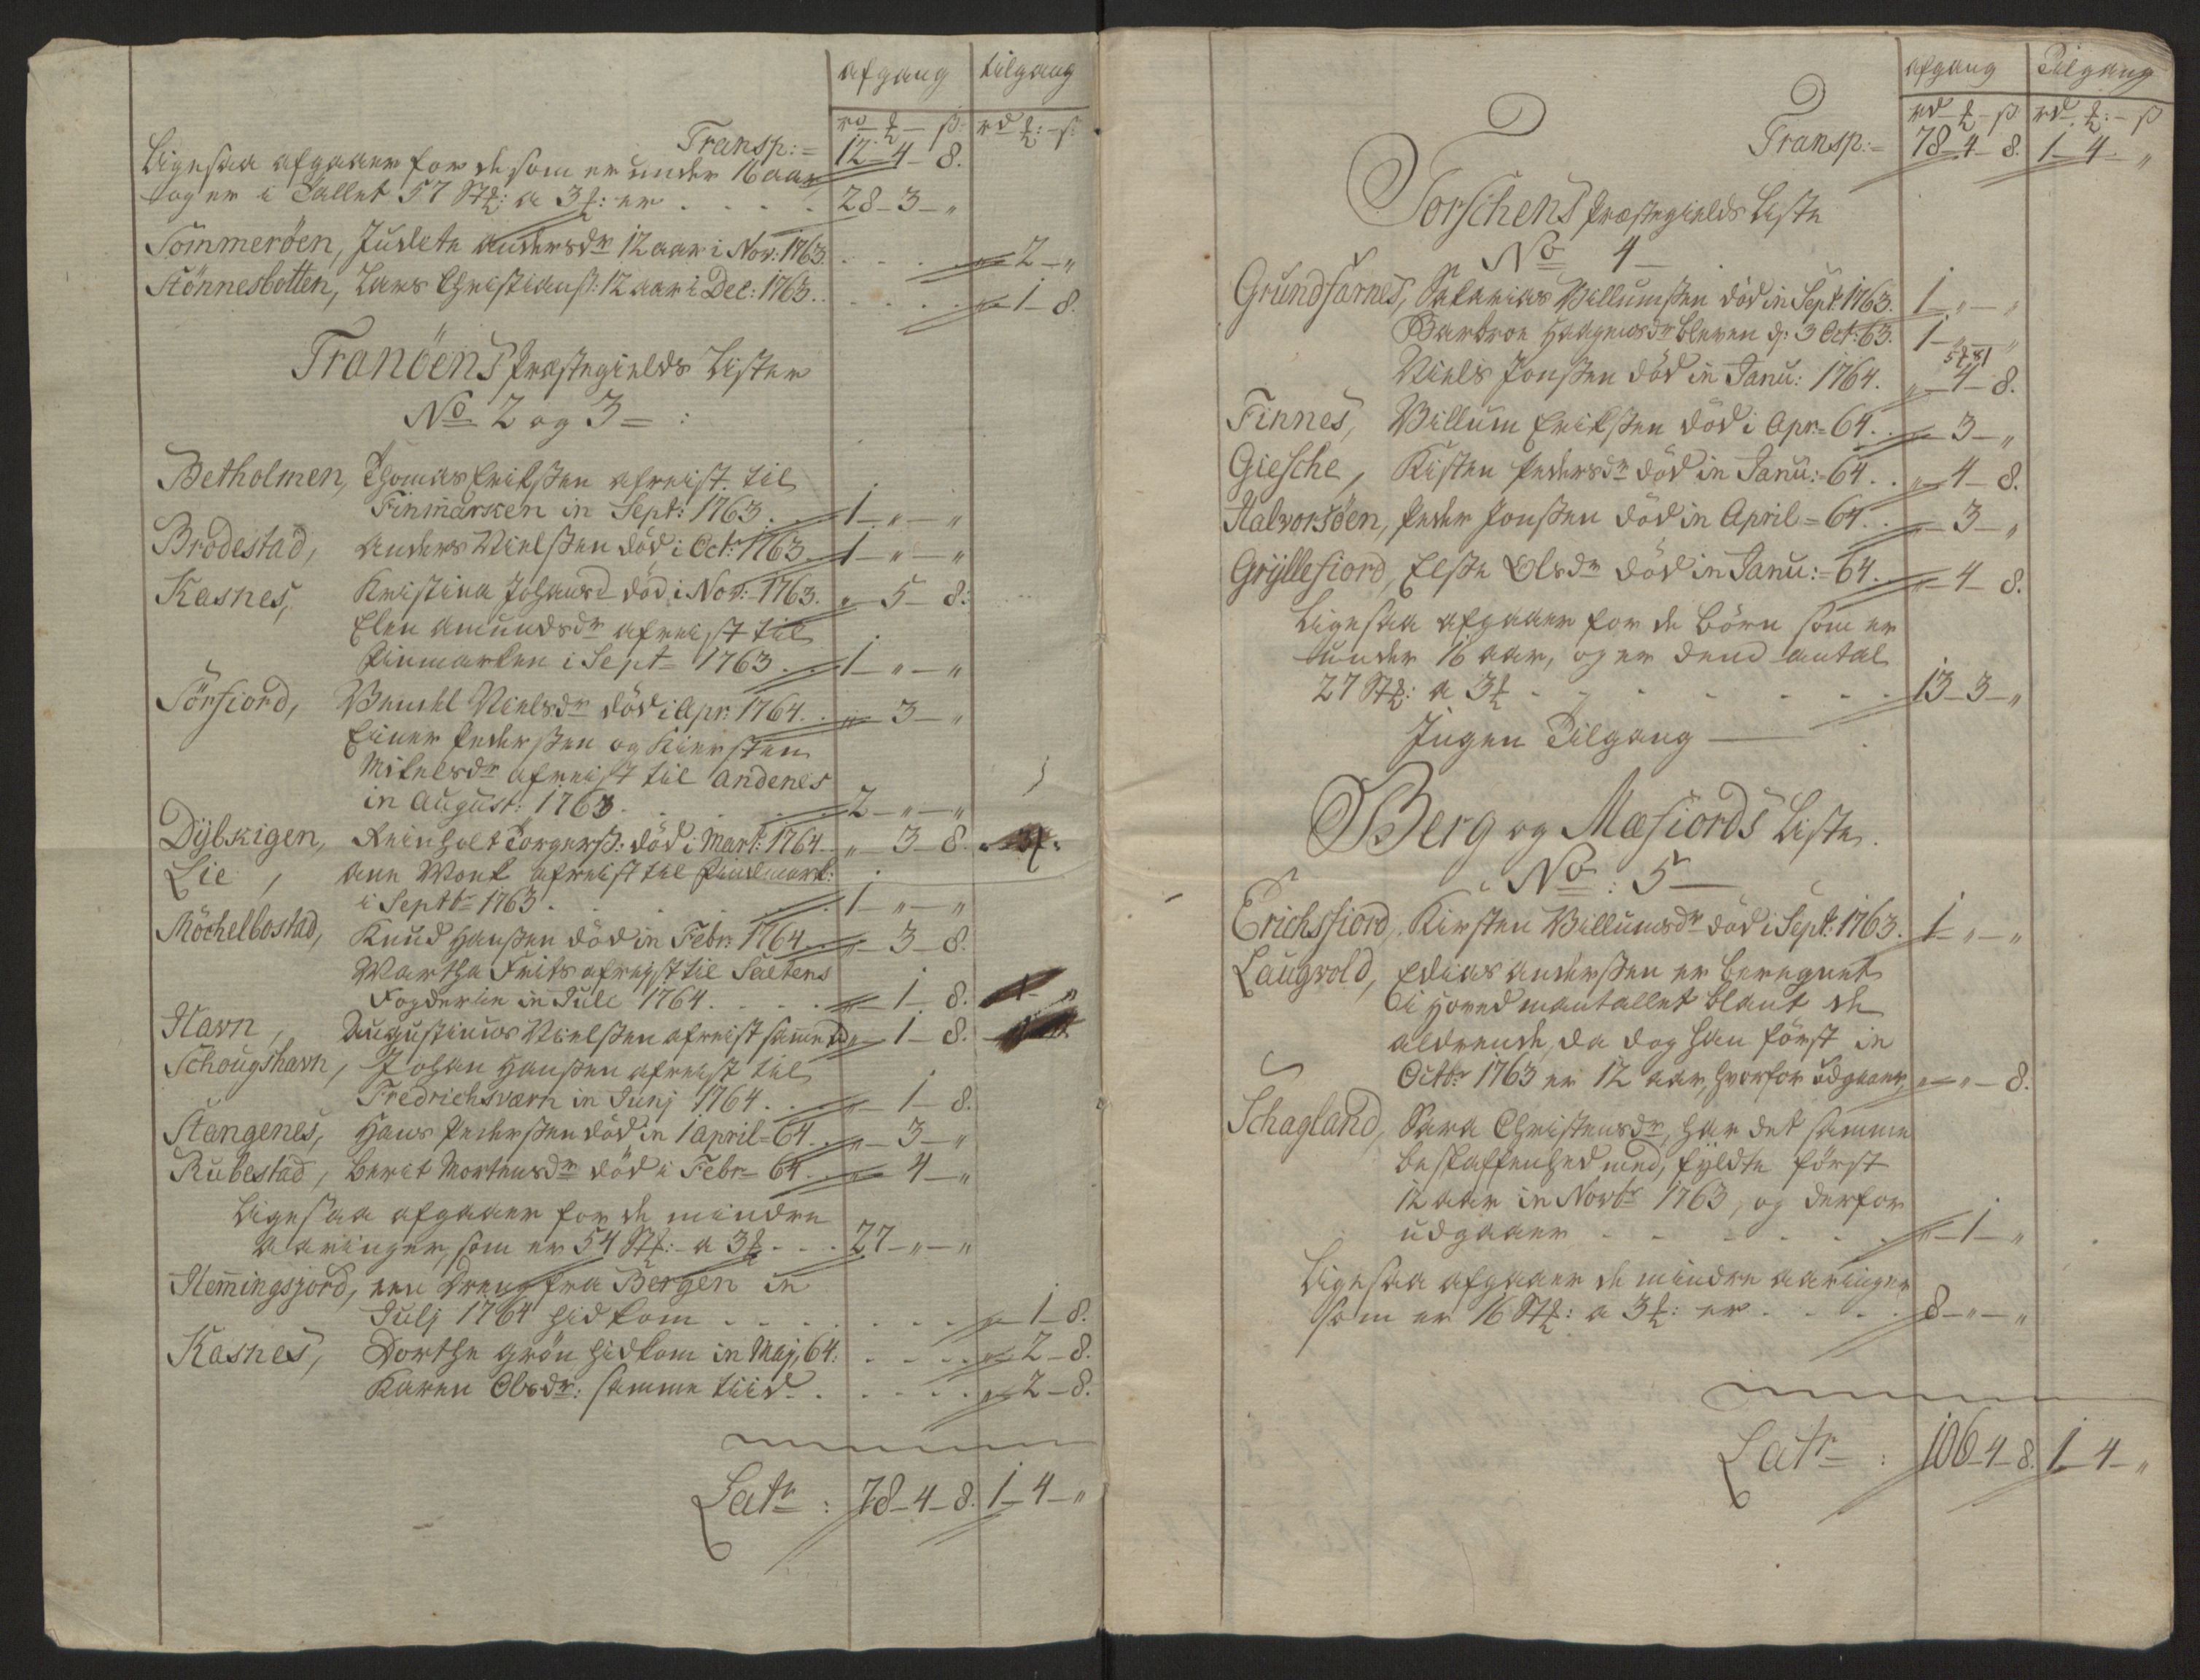 afgang tilgang
rd ℔ – ß rd ℔: – ß
Transp:= 12 – 4 – 8.
Ligesaa afgaaer for de som er under 16 aar
og er i Tallet 57 St: a 3 ℔: er . . . . 28 – 3 – „
Sommeröen, Judete Andersdr 12 aar i Nov: 1763. . . . . „ – 2 – „
Stönnesbotten, Lars Christians: 12 aar i Dec: 1763. . . . . „ – 1 – 8.
Tranöens Præstegields Lister
No 2 og 3 = :
Betholmen, Thomas Eriksen afreist til
Finmarken in Sept: 1763. . . . 1 – „ – „
Brodestad, Anders Nielsen död i Oct: 1763 . 1 – „ – „
Kasnes, Kristina Johansd död i Nov: 1763. „ – 5 – 8.
Elen Amundsdr afreist til
Finmarken i Sept= 1763 . 1 – „ – „
Sörfiord, Nielsdr död i Apr: 1764. . „ – 3 – „
Einer Pedersen og Kiersten
Mikelsdr afreist til Andenes
in August: 1763. . . . 2 – „ – „
Dybskigen, Reinholt Torgers: död i Mart: 1764 „ – 3 – 8.
Lie, Ane Monk afreist til Findmark:
i Septbr 1763 . . . . 1 – „ – „
Möchelbostad, Knud Hansen död in Febr: 1764. „ – 3 – 8.
Martha Frits afreist til Saltens
Fogderie in Jule 1764. . . . „ – 1 – 8.
Havn, Augustinus Nielsen afreist samme tid „ – 1 – 8.
Schougshavn, Johan Hansen afreist til
Fredrichsværn in Junj 1764. . . „ – 1 – 8.
Stangenes, Hans Pedersen död in 1 April = 64. . „ – 3 – „
Rubestad, Berit Mortensdr död i Febr= 64. . „ – 4 – „
Ligesaa afgaaer for de mindre
aaringer, som er 54 St:- a 3 ℔. . . 27 – „ – „
Hemingsjord, een Dreng fra Bergen in
Julj 1764 hidkom . . . . . . „ – 1 – 8.
Kasnes, Dorthe Grön hidkom in Maj, 64: . . . . „ – 2 – 8.
Karen Olsdr: samme tiid . . . . . „ – 2 – 8.
Latr : 78 – 4 – 8. 1 – 4 – „
afgang Tilgang
rd – ℔ – ß rd – ℔: – ß
Transp:= 78 – 4 – 8. 1 – 4 – „
Torschens Præstegields Liste
No 4 –
Grundfarnes, Sakarias Villumsen död in Sept: 1763. 1 – „ – „
Barbroe Haagensdr bleven d: 3 Oct: 63. 1 – „ – „
Niels Jonsen död in Janu: 1764. „ – 4 – 8.
Finnes, Villum Eriksen död i Apr:= 64. . „ – 3 – „
Giesche, Kisten Pedersdr död in Janu:= 64. . „ – 4 – 8.
Halvorsöen, Peder Jonsen död in April = 64. . „ – 3 – „
Gryllefiord, Elsse Olsdr död in Janu:= 64. . „ – 4 – 8.
Ligesaa afgaaer for de Börn som er
under 16 aar, og er dend antal
27 St: a 3 ℔ . . . . . . 13 – 3 – „
Ingen Tilgang —
Berg og Mæfiords Liste.
No : 5 –
Erichsfiord, Kirsten Villumsdr död i Sept: 1763. 1 – „ – „
Laugvold, Edias Andersen er beregnet
i Hovedmantallet blant de
aldrende, da dog han först in
Octbr 1763 er 12 aar, hvorfor udgaaer „ – „ – 8.
Schagland, Sara Christensdr, har det samme
beskaffenhed med, fyldte först
12 aar in Novbr 1763, og derfor
udgaaer . . . . . . „ – 1 – „
Ligesaa afgaaer de mindre aaringer
som er 16 St: a 3 ℔: er . . . . 8 – „ – „
Latr : 106 – 4 – 8. 1 – 4 – „